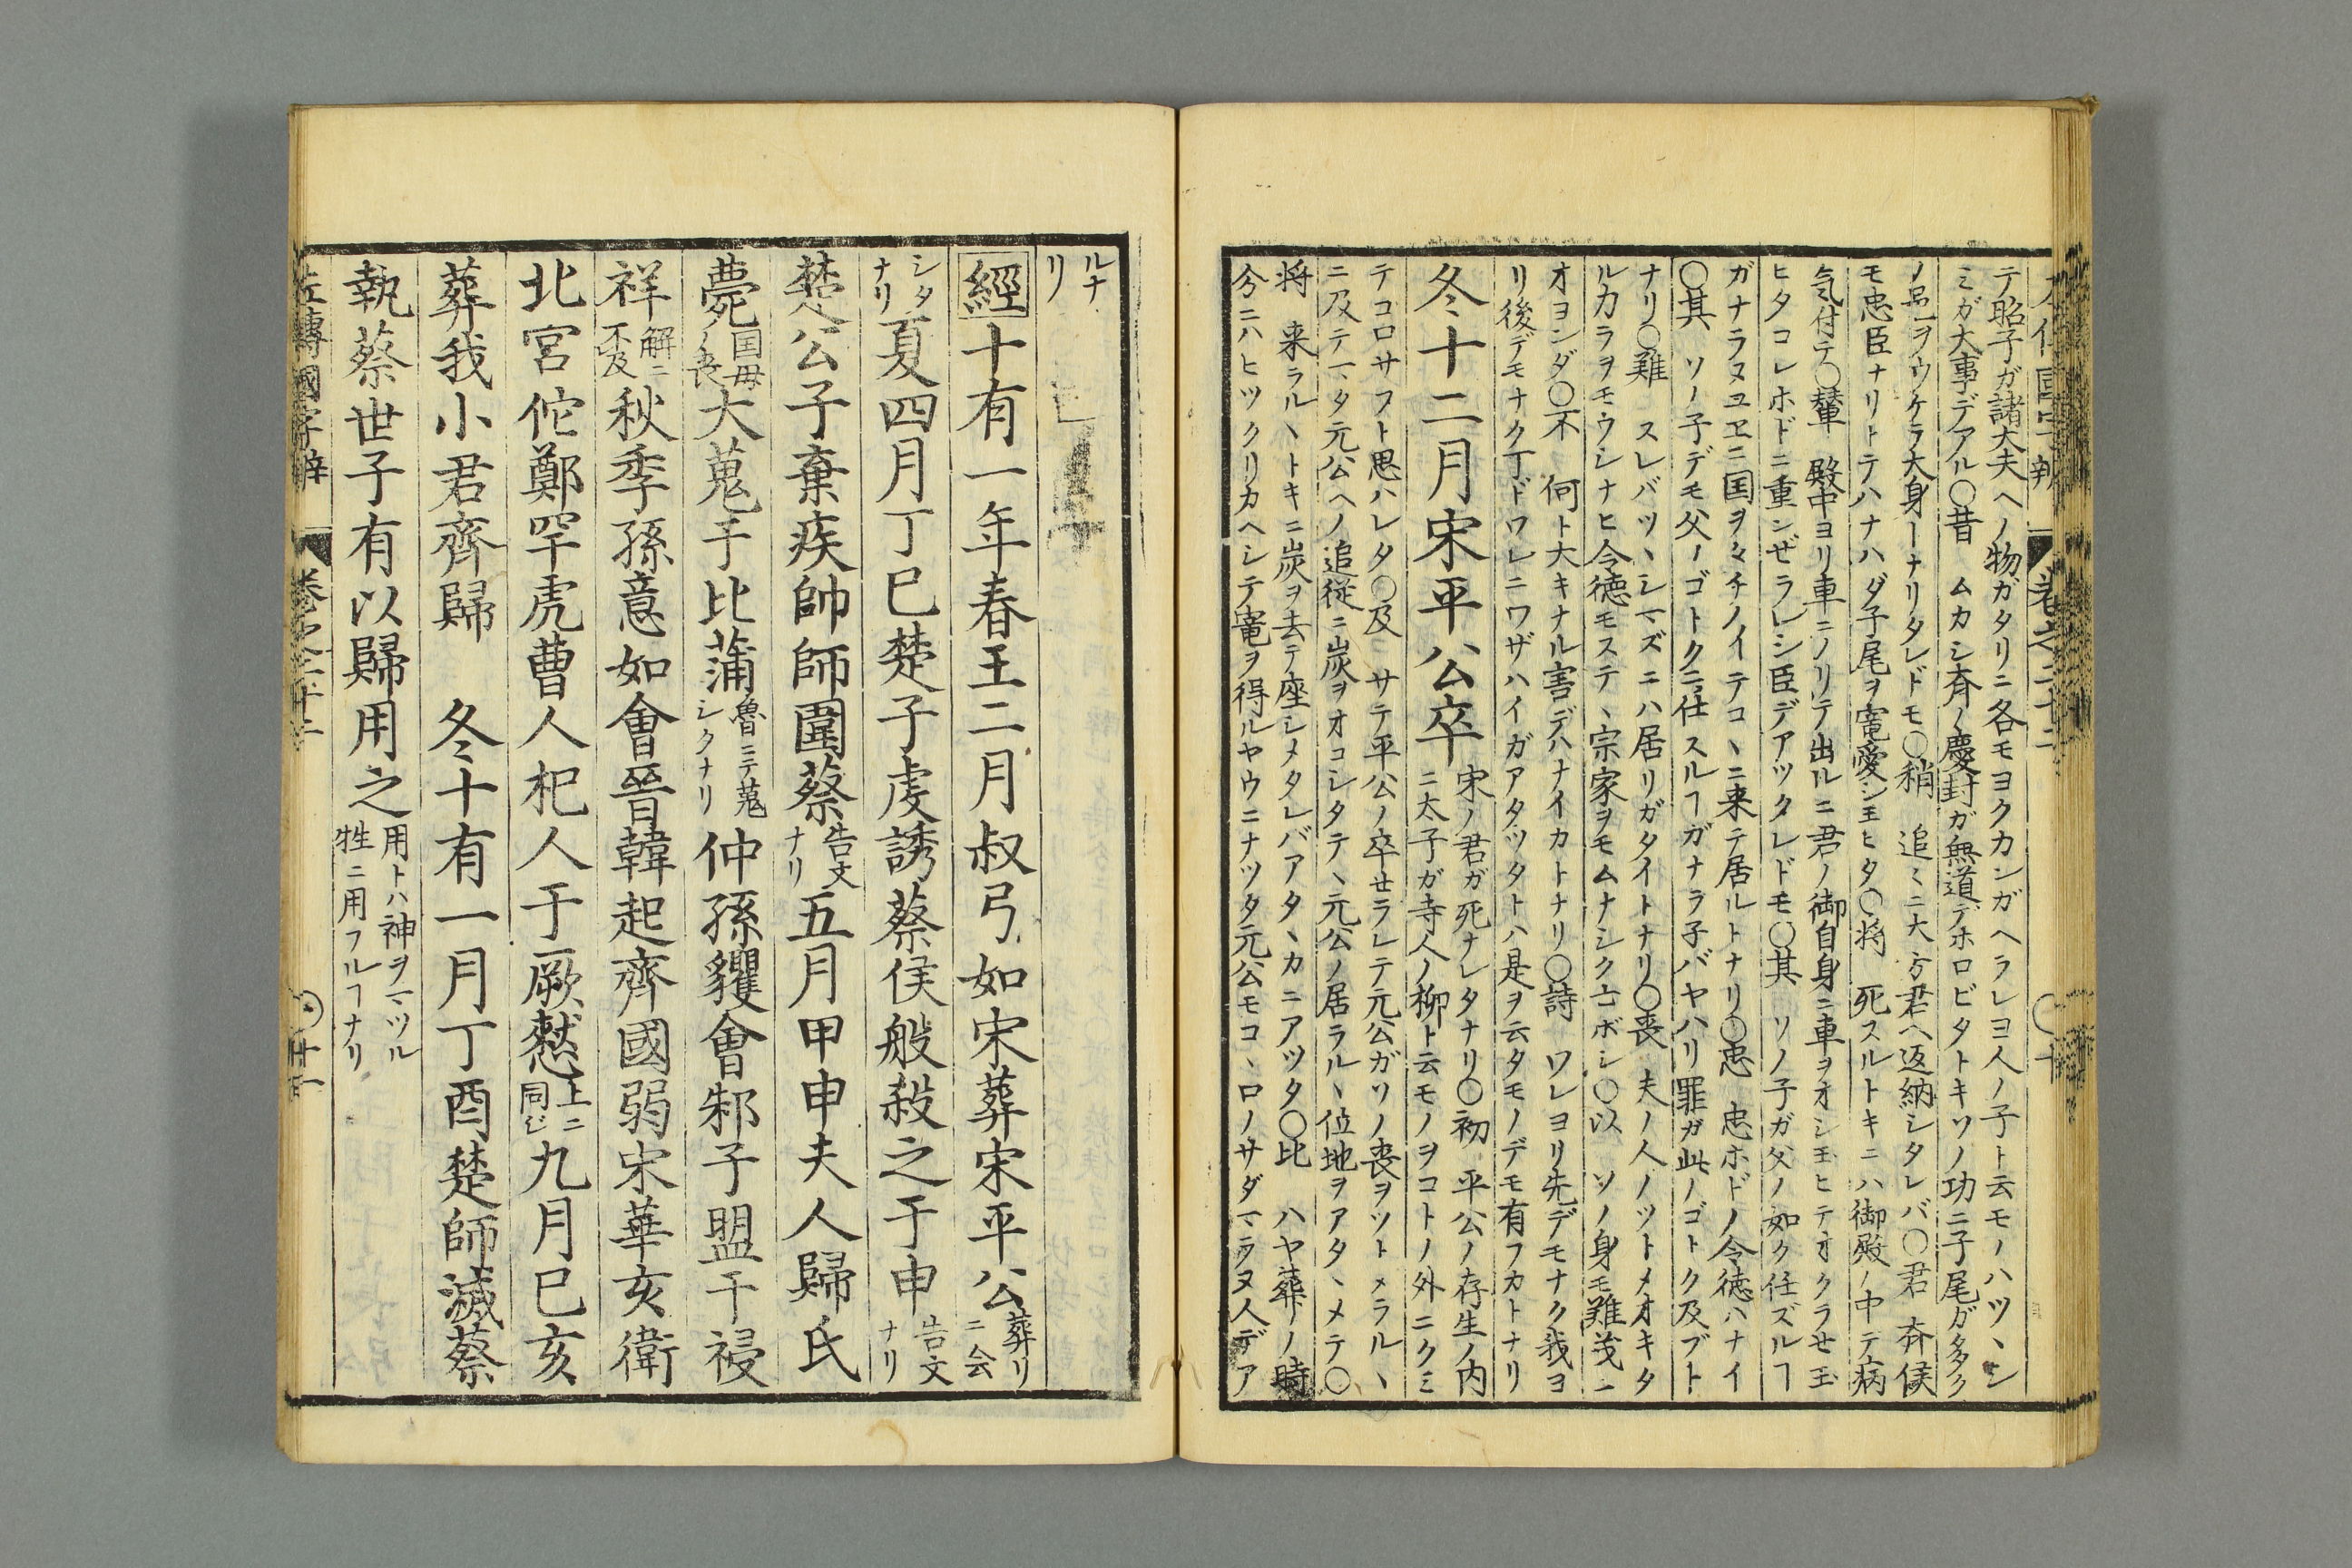 左傳國字辨 卷之二十二 〇十
テ昭子ガ諸大夫ヘノ物ガタリニ各モヨクカンガヘラレヨ人ノ子ト云モノハツヽシ
ミガ大事デアル〇昔 ムカシ斉ノ慶封ガ無道デホロビタトキソノ功ニ子尾ガ多ク
ノ邑ヲウケラ大身ーナリタレドモ〇稍 追〻ニ大方君ヘ返納シタレバ〇君 斉侯
モ忠臣ナリトテハナハダ子尾ヲ寵愛シ玉ヒタ〇将 死スルトキニハ御殿ノ中テ病
気付テ〇輦 殿中ヨリ車ニノリテ出ルニ君ノ御自身ニ車ヲオシ玉ヒテオクラセ玉
ヒタコレホドニ重ンゼラレシ臣デアツタレドモ〇其 ソノ子ガ父ノ如ク任ズルヿ
ガナラヌユヱニ国ヲタチノイテコヽニ来テ居ルトナリ〇忠 忠ホドノ令徳ハナイ
〇其 ソノ子デモ父ノゴトクニ仕スルヿガナラ子バヤハリ罪ガ此ノゴトク及ブト
ナリ〇難 スレバツヽシマズニハ居リガタイトナリ〇喪 夫ノ人ノツトメオキタ
ル力ラヲモウシナヒ令徳モステヽ宗家ヲモムナシク亡ボシ〇以 ソノ身モ難義ー
オヨンダ〇不 何ト大キナル害デハナイカトナリ〇詩 ワレヨリ先デモナク我ヨ
リ後デモナク丁ドワレニワザハイガアタツタトハ是ヲ云タモノデモ有フカトナリ
冬十二月宋平公卒
宋ノ君ガ死ナレタナリ〇初 平公ノ存生ノ内
ニ太子ガ寺人ノ柳ト云モノヲコトノ外ニクミ
テコロサフト思ハレタ〇及 サテ平公ノ卒セラレテ元公ガソノ喪ヲツトメラルヽ
ニ及テマタ元公ヘノ追従ニ炭ヲオコシタテヽ元公ノ居ラルヽ位地ヲアタヽメテ〇
将 来ラルヽトキニ炭ヲ去テ座シメタレバアタヽカニアツタ〇比 ハヤ葬ノ時
今ニハヒツクリカヘシテ寵ヲ得ルヤウニナツタ元公モコヽロノサダマラヌ人デア
ルナ
リ
經十有一年春王二月叔弓如宋葬宋平公葬リニ会
シタナリ夏四月丁巳楚子虔誘蔡侯般殺之于申告文ナリ
楚公子棄疾帥師圍蔡告文ナリ五月甲申夫人歸氏
薨国母ノ喪大蒐于比蒲魯ニテ蒐シクナリ仲孫貜會邾子盟于祲
祥解ニ不及秋季孫意如會晉韓起齊國弱宋華亥衛
北宮佗鄭罕虎曹人杞人于厥憖上ニ同じ九月己亥
葬我小君齊歸 冬十有一月丁酉楚師滅蔡
執蔡世子有以歸用之用トハ神ヲマツル牲ニ用フルヿナリ
左傳國字辨 卷之二十二 〇廿一